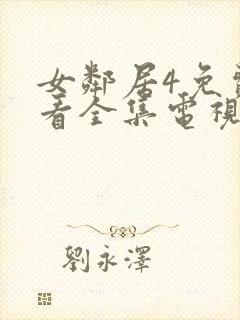 女鄰居4免費
看全集電視
劉永澤